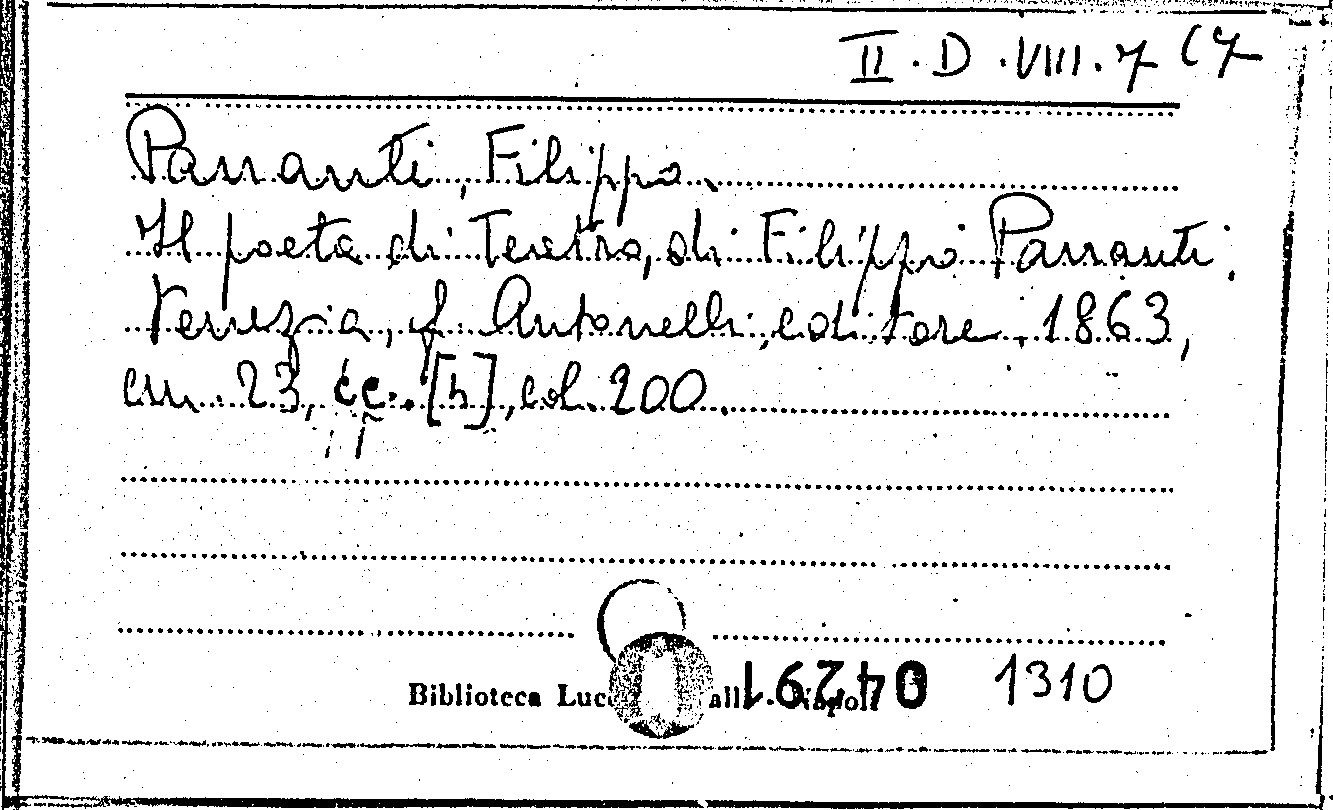 II . D . VIII . 7 (7
Pananti, Filippo.
Il poeta di Teatro, di Filippo Pananti.
Venezia, G. Antonelli, editore, 1863,
cm. 23, cc. [h], col. 200.
Biblioteca Luc alli Napoli
04291 1310